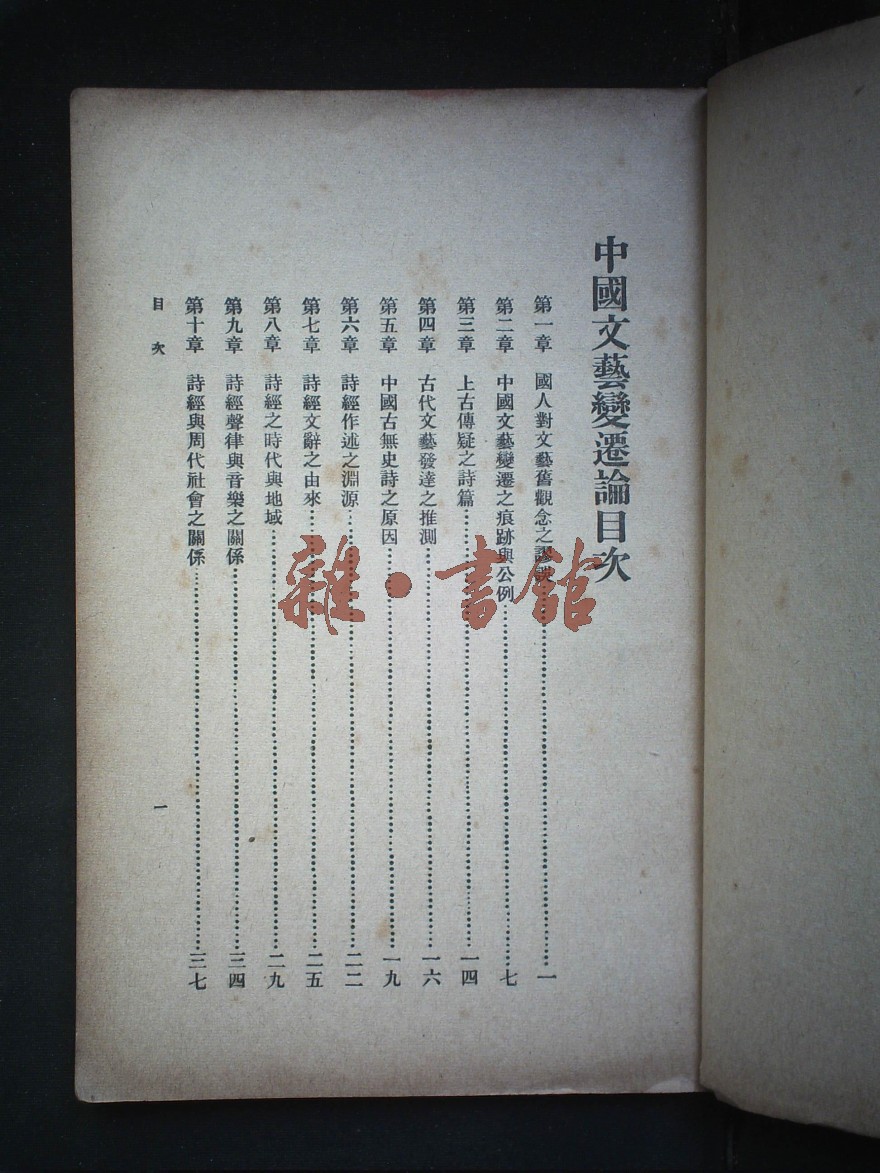 中國文藝變遷論目次
第一章 國人對文藝舊觀念之謬誤……一
第二章 中國文藝變遷之痕跡與公例……七
第三章 上古傳疑之詩篇……一四
第四章 古代文藝發達之推測……一六
第五章 中國古無史詩之原因……一九
第六章 詩經作述之淵源……二二
第七章 詩經文辭之由來……二五
第八章 詩經之時代與地域……二九
第九章 詩經聲律與音樂之關係……三四
第十章 詩經與周代社會之關係……三七
目次 一
雜·書館